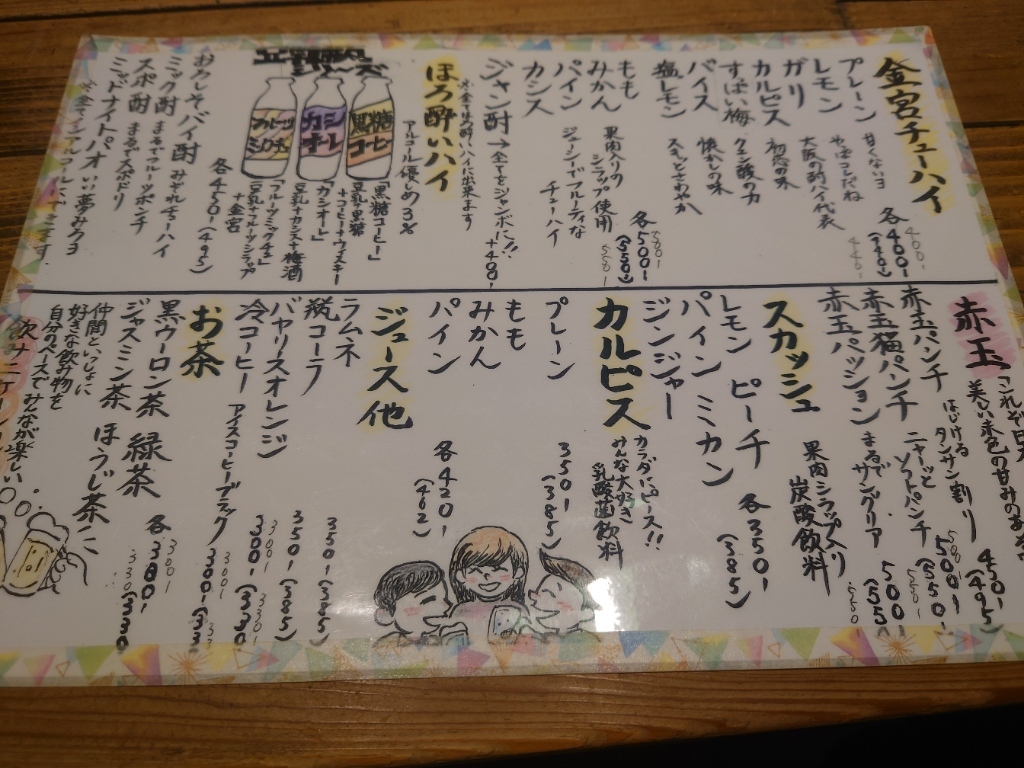 金宮チューハイ
各400-
(440)
プレーン 甘くないヨ
レモン やっぱこれだね
ガリ 大阪の酎ハイ代表
カルピス 初恋の味
すっぱい梅 クエン酸の力
バイス 懐かしの味
塩レモン スキッとさわやか
各500-
(550)
もも
みかん
パイン
カシス
果肉入りの
シラップ使用
ジューシーでフルーティな
チューハイ
ジャン酎→全てをジャンボに!! +400-
ほろ酔いハイ
アルコール優しめ3%
※全て生の酎ハイに出来ます
黒糖コーヒー
カシオーレ
フルーツミックチュ
「黒糖コーヒー」
豆乳+黒糖
+コーヒー+ウィスキー
「カシオーレ」
豆乳+カシス+梅酒
「フルーツミックチュ」
豆乳+フルーツシラップ
+金宮
各450-(495)
おろしそバイ酎 みぞれチューハイ
ミック酎 まるでフルーツポンチ
スポ酎 まるでスポドリ
ミッドナイトパオ いい夢みろヨ
赤玉
美しい赤色の甘みのあるワイン
450-
(495)
赤玉パンチ はじけるタンサン割り
500-
(550)
赤玉猫パンチ ニャーッとソフトパンチ
500-
(550)
赤玉パッション まるでサングリア
スカッシュ
果肉シラップ入り
炭酸飲料
各350-
(385)
レモン ピーチ
パイン ミカン
ジンジャー
カルピス
カラダにピース!!
みんな大好き
乳酸菌飲料
プレーン 350-(385)
もも
みかん
パイン
各420-
(462)
ジュース他
ラムネ 350-(385)
瓶コーラ 350-(385)
バヤリスオレンジ 300-(330)
冷コーヒー アイスコーヒーブラック 300-(330)
お茶
各300-
(330)
黒ウーロン茶 緑茶
ジャスミン茶 ほうじ茶
仲間といっしょに
好きな飲み物を
自分のペースでみんなが楽しい